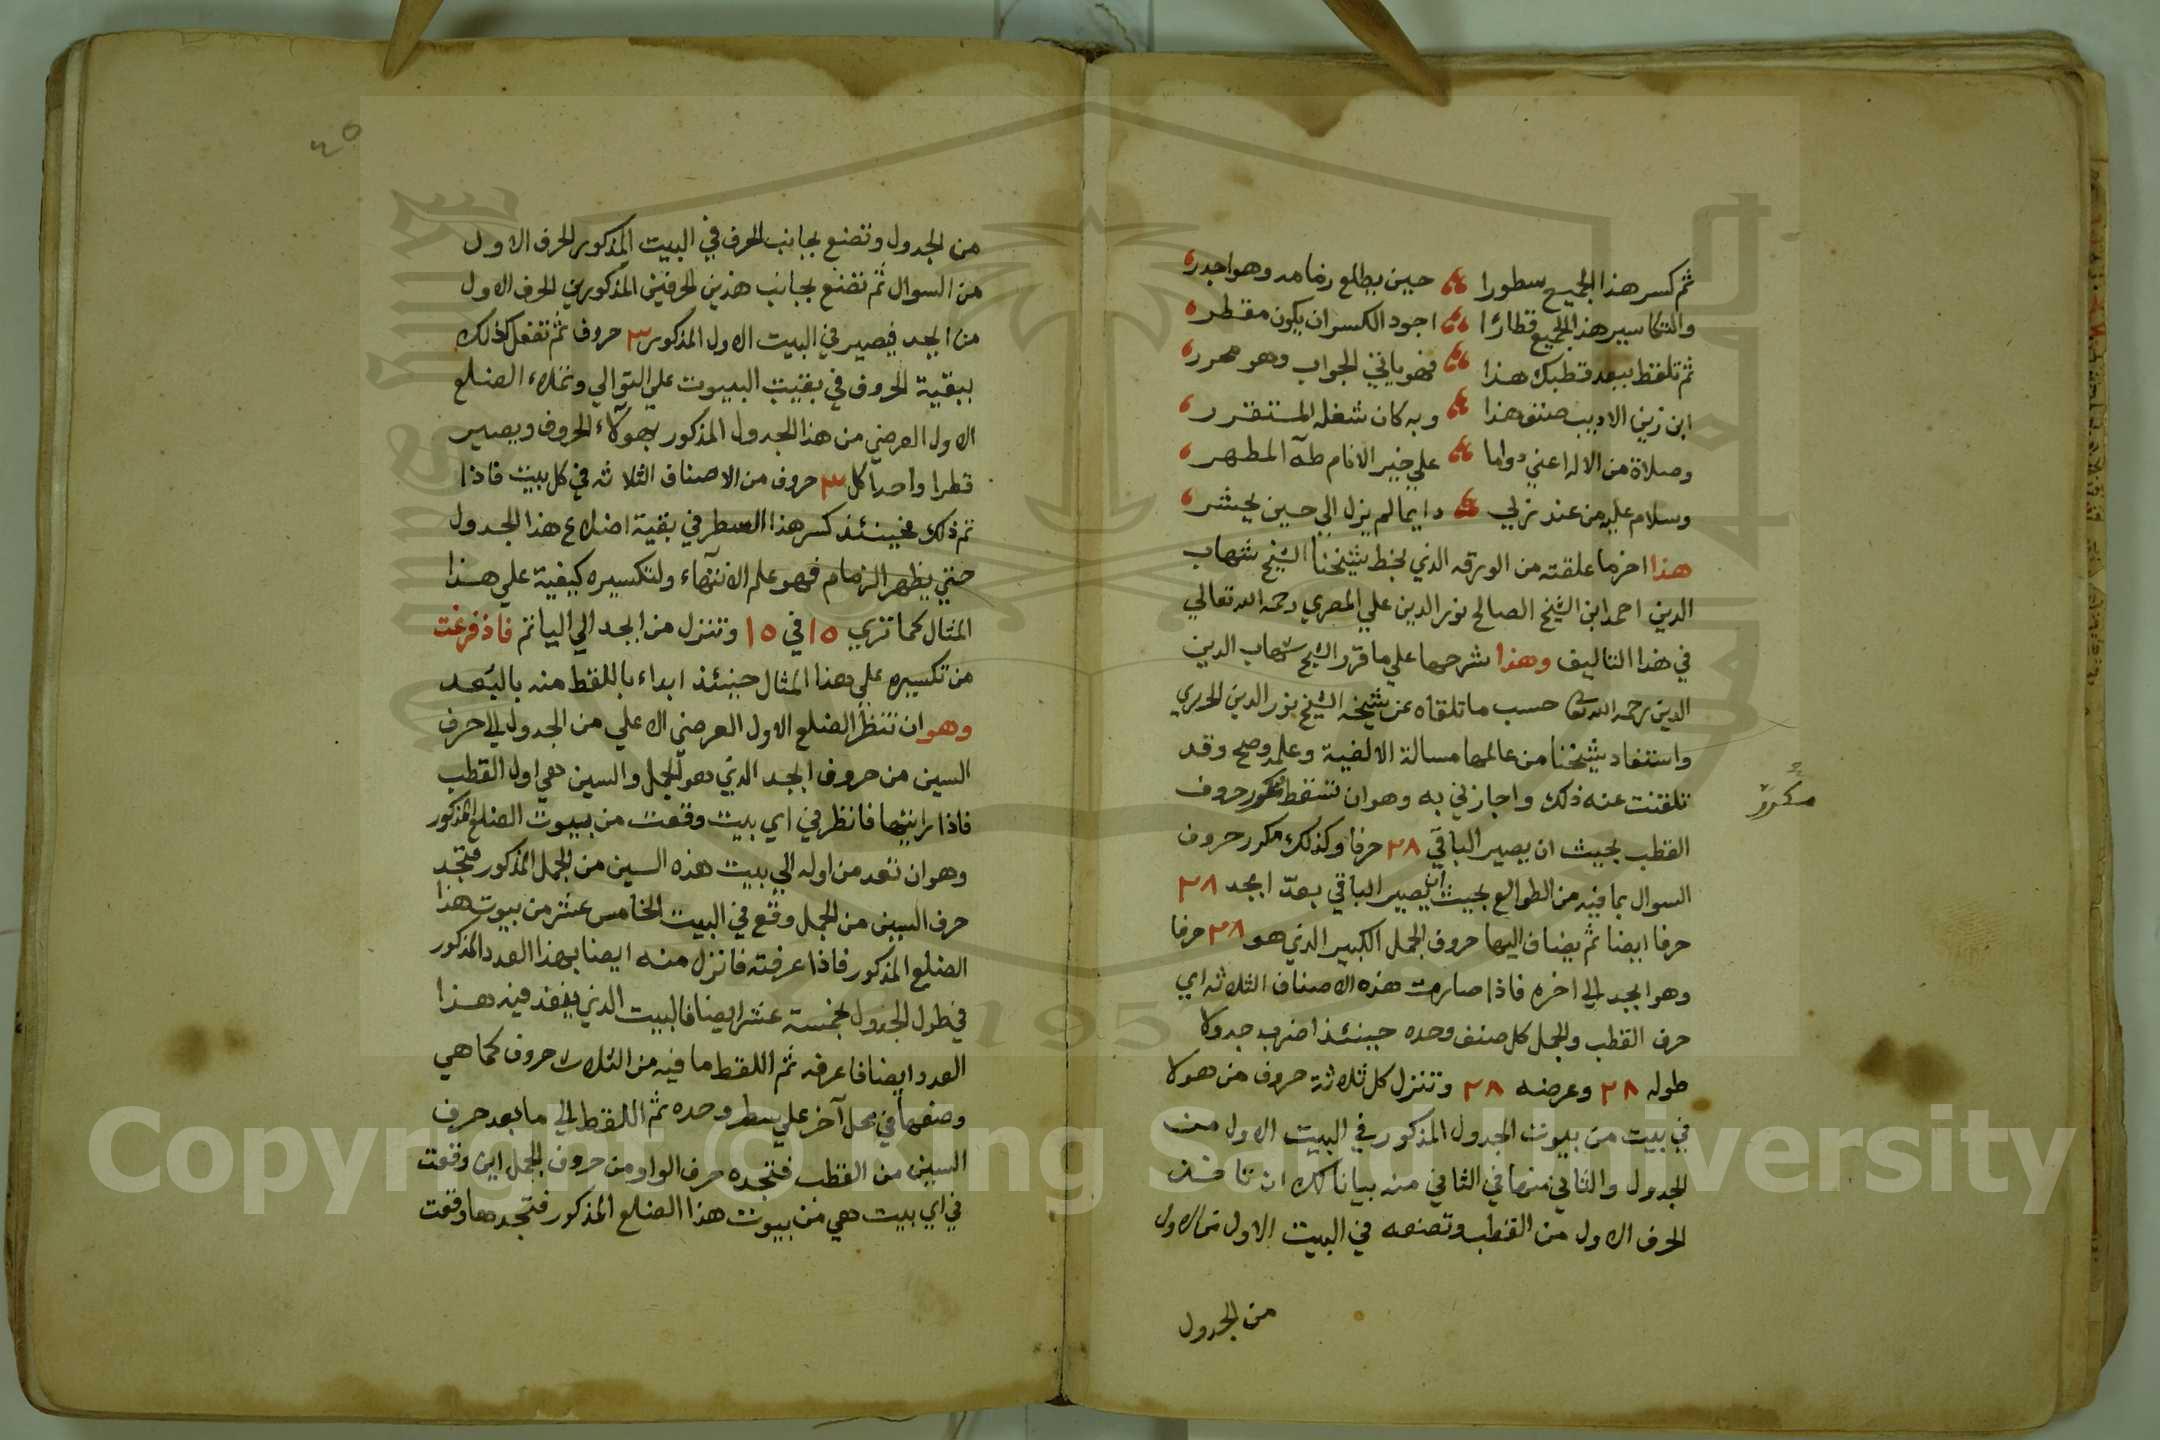 ثم كسر هذا الجميع سطورا حين يطلع زمامه وهو اجدر
والتكاسير هذا الجميع قطارًا اجود الكسر ان يكون مقطر
ثم تلقط ببعد قطبك هذا فهو ياتي الجواب وهو محرر
ابن زين الاديب صنف هذا وبه كان شغله المستقرر
وصلاة من الاله اعني دواما علي خير الانام طه المطهر
وسلام عليه من عند ربي دايما لم يزل الي حين يحشر
هذا اخر ما علقته من الورقه الذي بخط شيخنا الشيخ شهاب
الدين احمد ابن الشيخ الصالح نور الدين علي المصري رحمه الله تعالي
في هذا التاليف وهذا شرحها علي ما قرر الشيخ شهاب الدين
الدين رحمه الله حسب ما تلقاه عن شيخه الشيخ نور الدين الحريري
واستفاد شيخنا من عالمها مسالة الالفية وعلمه وصح وقد
تلقنت عنه ذلك واجازني به وهو ان تسقط مكرر حروف
القطب بحيث ان يصير الباقي ٢٨ حرفا وكذلك مكرر حروف
السوال بما فيه من الطوالع بحيث ان يصير الباقي بعدّ ابجد ٢٨
حرفا ايضا ثم يضاف اليها حروف الجمل الكبير الذي هو ٢٨ حرفا
وهو ابجد الي اخره فاذا صارت هذه الاصناف الثلاثه اي
حرف القطب والجمل كل صنف وحده حينئذ اضرب جدولا
طوله ٢٨ وعرضه ٢٨ وتنزل كل ثلاثة حروف من هولا
في بيت من بيوت الجدول المذكور في البيت الاول من
الجدول والثاني منها في الثاني منه بيانا لك ان تاخذ
الحرف الاول من القطب وتضعه في البيت الاول من الاول
من الجدول
مكرر
٤٥
من الجدول وتضع بجانب الحرف في البيت المذكور الحرف الاول
من السوال ثم تضع بجانب هذين الحرفين المذكورين الحرف الاول
من ابجد فيصير في البيت الاول المذكور ٣ حروف ثم تفعل كذلك
ببقية الحروف في بقيت البيوت علي التوالي وتملاء الضلع
الاول العرضي من هذا الجدول المذكور بهولآء الحروف ويصير
قطرا واحدا كل ٣ حروف من الاصناف الثلاثه في كل بيت فاذا
تم ذلك فحينئذ كسر هذا السطر في بقية اضلاع هذا الجدول
حتي يظهر الزمام فهو علم الانتهآء ولتكسيره كيفية علي هذا
المثال كما تري ١٥ في ١٥ وتنزل من ابجد الي اليا تم فاذ فرغت
من تكسيره علي هذا المثال حينئذ ابداء باللقط منه بالبعد
وهو ان تنظر الضلع الاول العرضي الاعلي من الجدول الي حرف
السين من حروف ابجد الذي هو الجمل والسين هي اول القطب
فاذا رايتها فانظر في اي بيت وقعت من بيوت الضلع المذكور
وهو ان تعد من اوله الي بيت هذه السين من الجمل المذكور فتجد
حرف السين من الجمل وقع في البيت الخامس عشر من بيوت هذا
الضلع المذكور فاذا عرفته فانزل منه ايضا بهذا العدد المذكور
في طول الجدول بخمسة عشر ايضا فالبيت الذي ينفذ فيه هذا
العدد ايضا فاعرفه ثم اللقط ما فيه من الثلاث حروف كما هي
وضعها في محل آخر علي سطر وحده ثم اللقط الي ما بعد حرف
السين من القطب فتجده حرف الواو من حروف الجمل اين وقعت
في اي بيت هي من بيوت هذا الضلع المذكور فتجدها وقعت
Copyright © King Saud University
1957